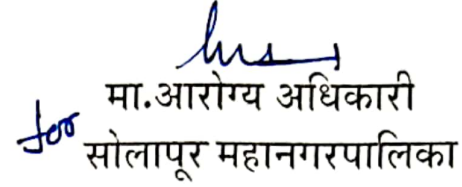 मा.आरोग्य अधिकारी
for सोलापूर महानगरपालिका